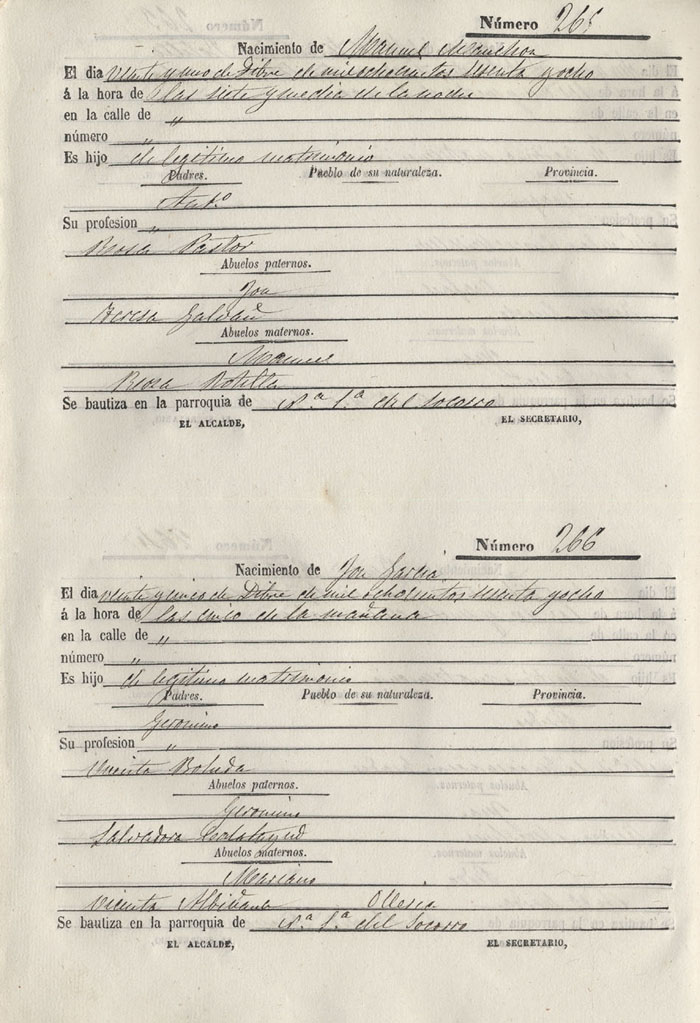 Número 265
Nacimiento de Manuel Manchon
El dia veinte y uno de Dibre de mil ochocientos sesenta y ocho
á la hora de las siete y media de la noche
en la calle de "
número "
Es hijo de legitimo matrimonio
Padres. Pueblo de su naturaleza. Provincia.
Anto
Su profesion "
Rosa Pastor
Abuelos paternos.
Jose
Teresa Galvañ
Abuelos maternos.
Manuel
Rosa Botella
Se bautiza en la parroquia de Na Sa del Socorro
EL ALCALDE, EL SECRETARIO,
Número 266
Nacimiento de Jose Garcia
El dia veinte y cinco de Dibre de mil ochocientos sesenta y ocho
á la hora de las cinco de la mañana
en la calle de "
número "
Es hijo de legitimo matrimonio
Padres. Pueblo de su naturaleza. Provincia.
Geronimo
Su profesion "
Vicenta Boluda
Abuelos paternos.
Geronimo
Salvadora Calatayud
Abuelos maternos.
Mariano
Vicenta Albiñana
Se bautiza en la parroquia de Na Sa del Socorro
EL ALCALDE, EL SECRETARIO,